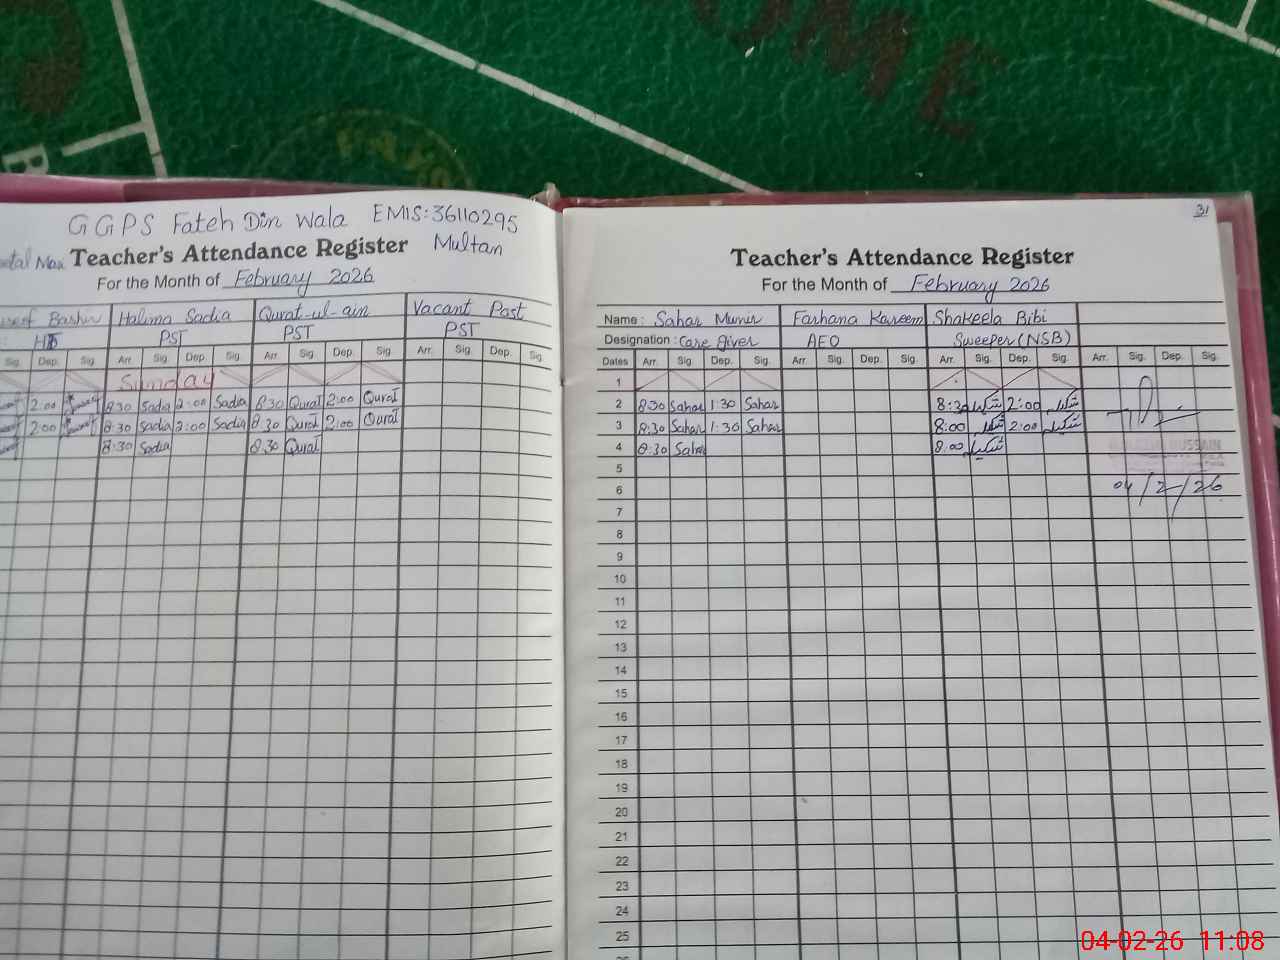 OME
GGPS Fateh Din Wala EMIS:36110295
Multan
Teacher's Attendance Register
For the Month of February 2026
Bashir Halima Sadia Qurat-ul-ain Vacant Post
PST PST PST
Sig. Dep. Sig. Arr. Sig. Dep. Sig. Arr. Sig. Dep. Sig. Arr. Sig. Dep. Sig.
Sunday
2:00 8:30 Sadia 2:00 Sadia 8:30 Qurat 2:00 Qurat
2:00 8:30 Sadia 2:00 Sadia 8:30 Qurat 2:00 Qurat
8:30 Sadia 8:30 Qurat
31
Teacher's Attendance Register
For the Month of February 2026
Name: Sahar Munir Farhana Kareem Shakeela Bibi
Designation: Care giver AEO Sweeper (NSB)
Dates Arr. Sig. Dep. Sig. Arr. Sig. Dep. Sig. Arr. Sig. Dep. Sig. Arr. Sig. Dep. Sig.
1
2 8:30 Sahar 1:30 Sahar 8:30 شکیلہ 2:00 شکیلہ
3 8:30 Sahar 1:30 Sahar 8:00 شکیلہ 2:00 شکیلہ
4 8:30 Sahar 8:00 شکیلہ
HUSSAIN
5
6 04/2/26
7
8
9
10
11
12
13
14
15
16
17
18
19
20
21
22
23
24
25
04-02-26 11:08